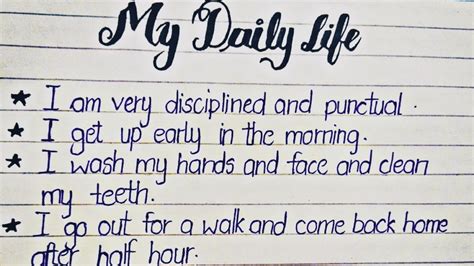 My Daily Life
★ I am very disciplined and punctual.
★ I get up early in the morning.
★ I wash my hands and face and clean
my teeth.
★ I go out for a walk and come back home
after half hour.